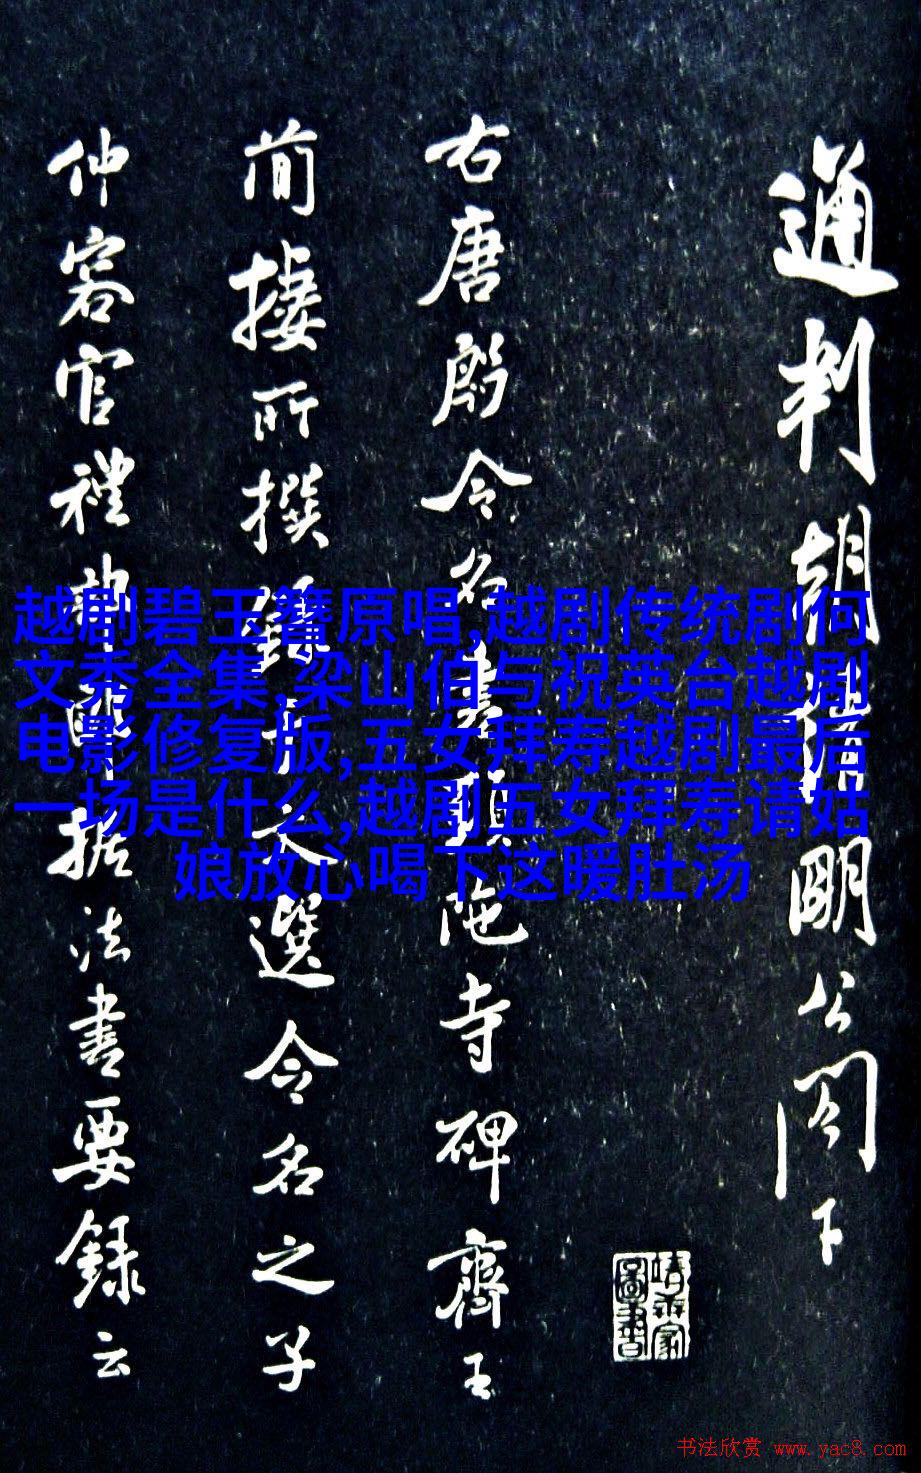 通判胡
明公阁下
右唐殷令名书头陀寺碑齐王
简栖所撰录于文选令名之子
仲容官礼部郎中据法书要录云
越剧碧玉簪原唱,越剧传统剧何
文秀全集,梁山伯与祝英台越剧
电影修复版,五女拜寿越剧最后
一场是什么,越剧五女拜寿请姑
娘放心喝下这暖肚汤
书法欣赏 www.yac8.com